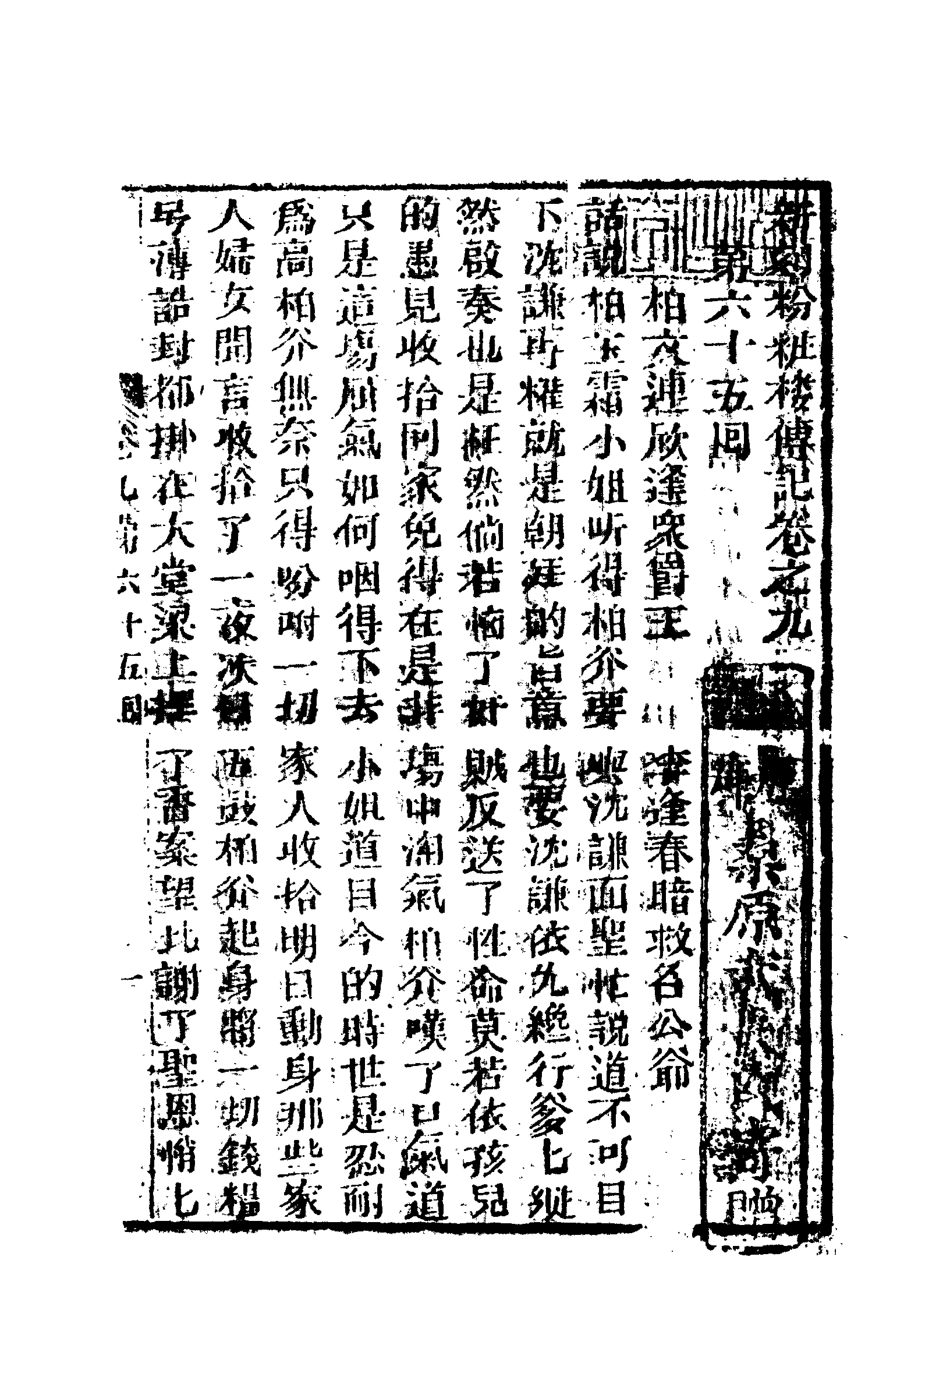 新刻粉粧楼傳記卷之九
第六十五囘
柏文連欣逢衆爵王　李逢春暗救各公爺
話說柏玉霜小姐听得柏爷要與沈謙面聖忙說道不可目
下沈謙專權就是朝廷的旨意也要沈謙依允纔行爹七縱
然啟奏也是枉然倘若惱了奸賊反送了性命莫若依孩兒
的愚見收拾囘家免得在是非塲中淘氣柏爷嘆了口氣道
只是這塲屈氣如何咽得下去小姐道目今的時世是忍耐
爲高柏爷無奈只得吩咐一切家人收拾明日動身那些家
人婦女聞言收拾了一夜次日五鼓柏爷起身將一切錢糧
号薄誥封都掛在大堂梁上擺了香案望北謝了聖恩悄七
卷九第六十五囘　一